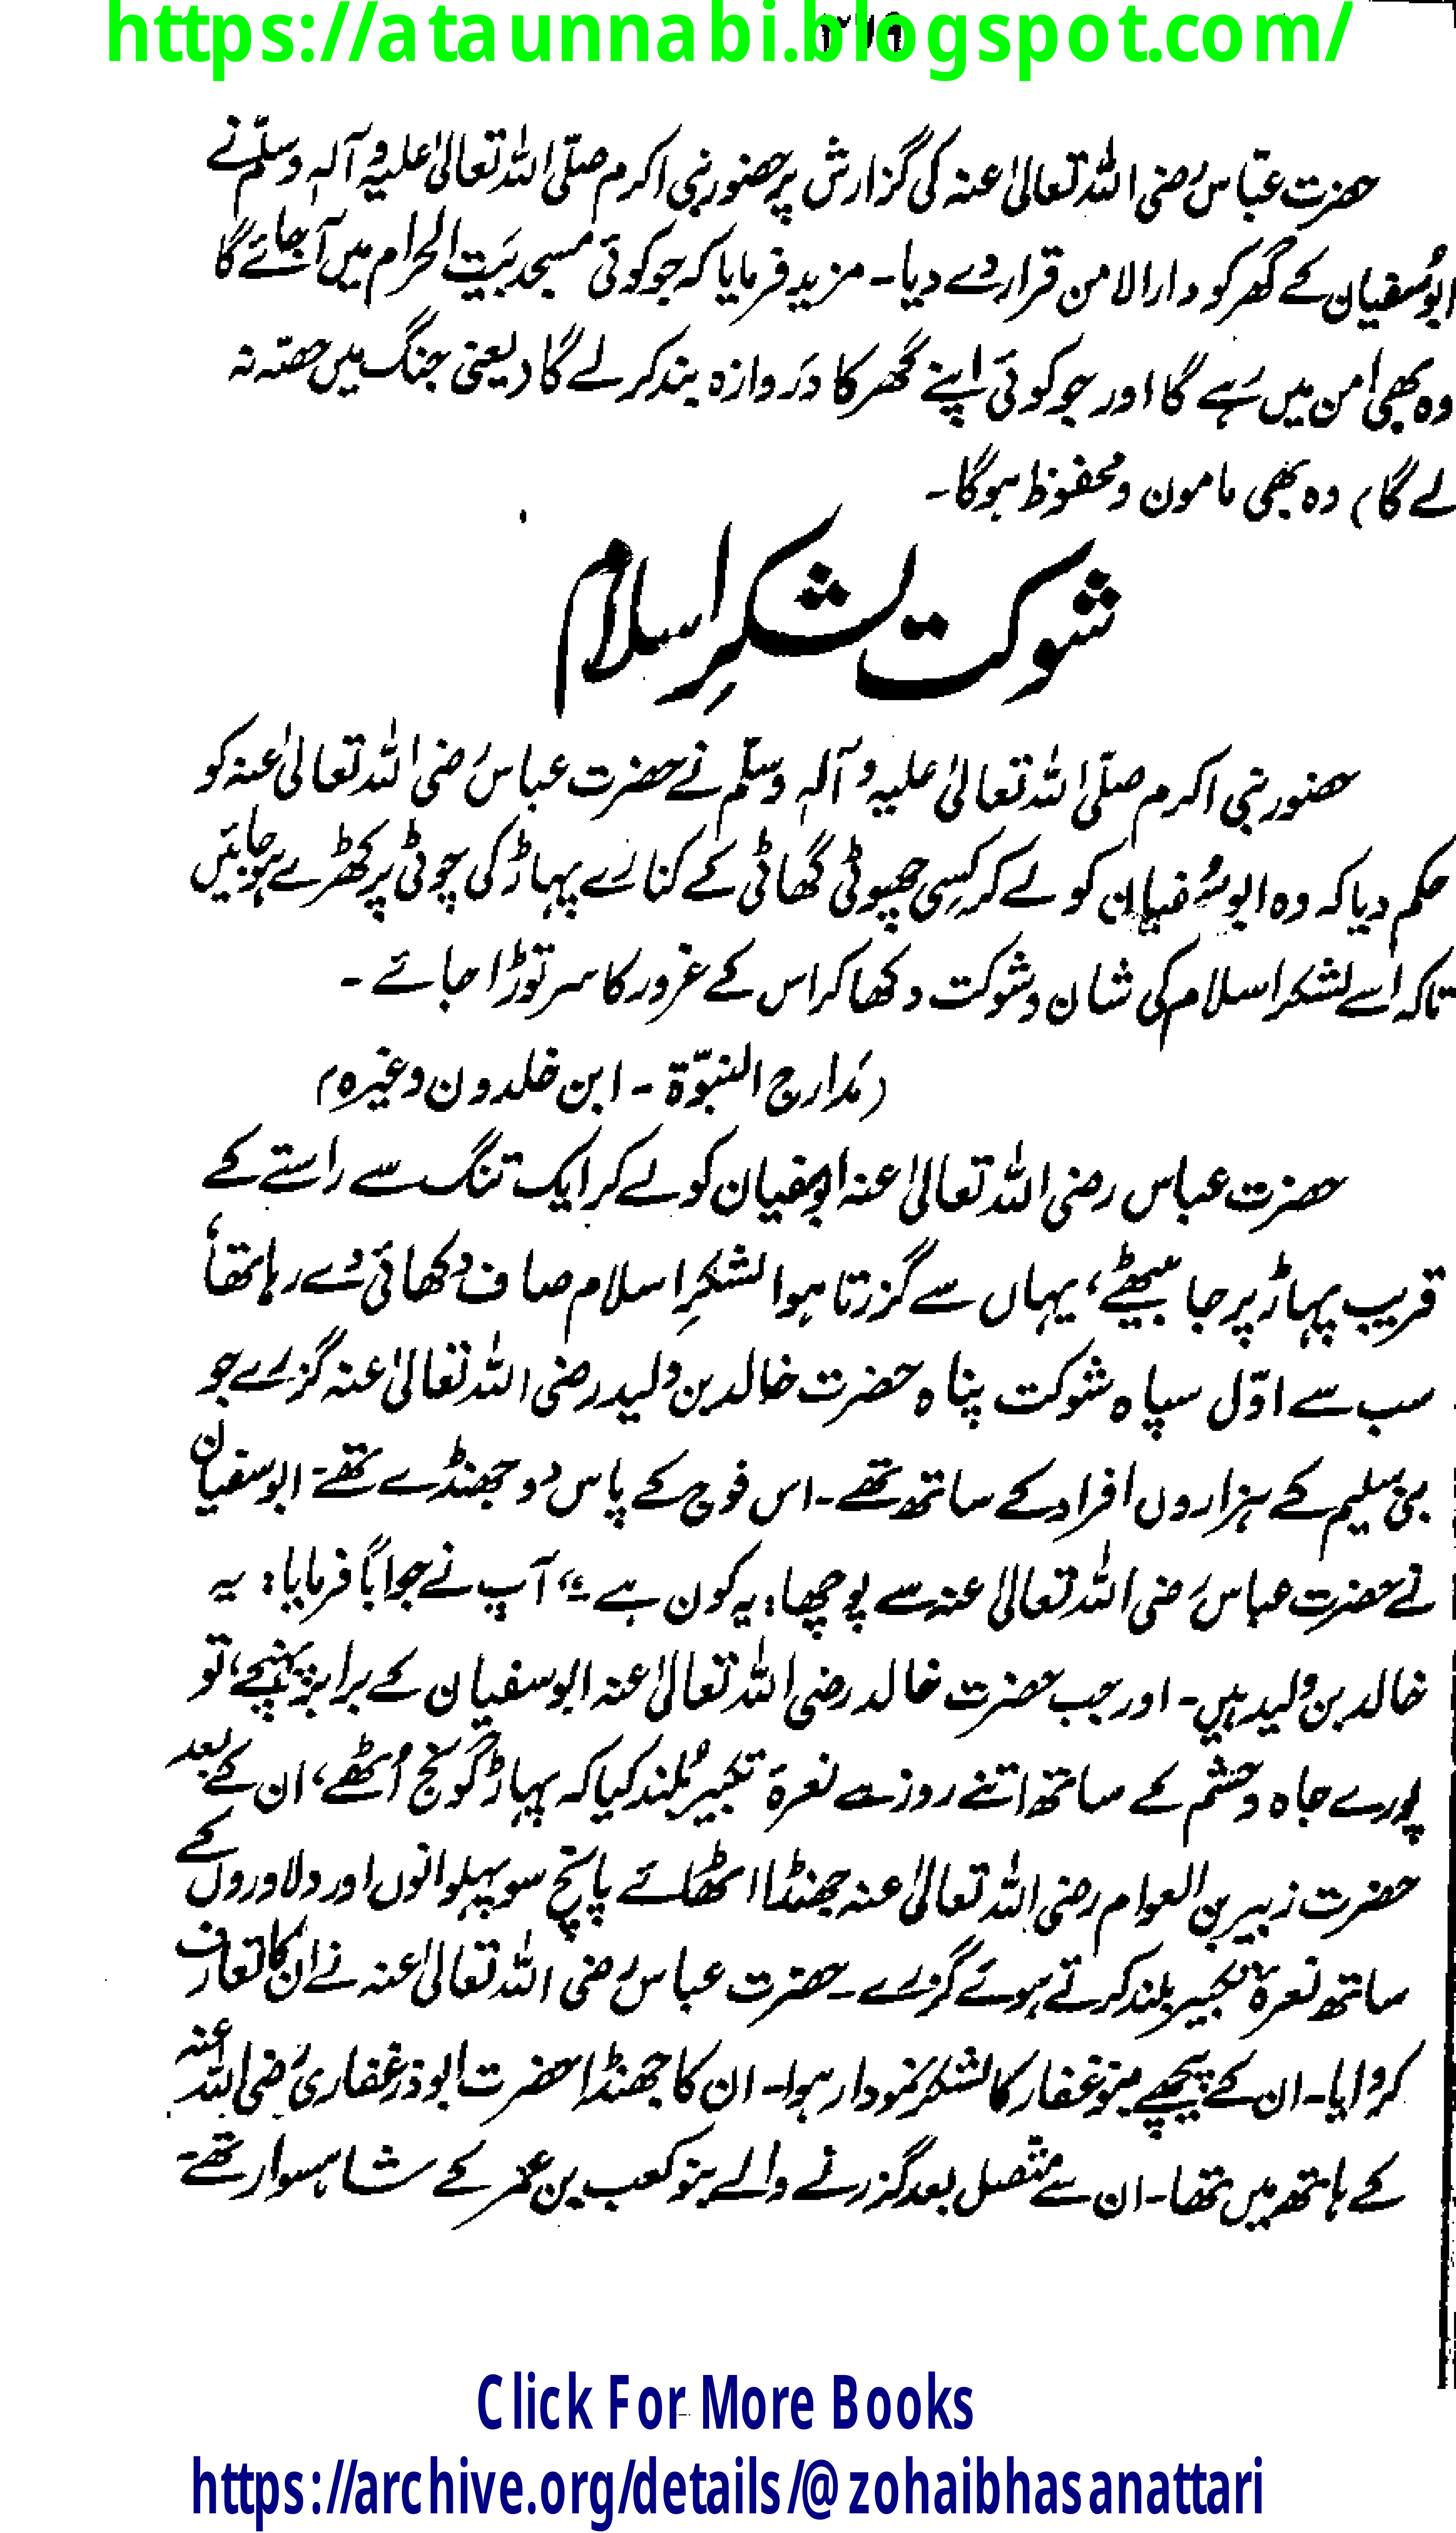 https://ataunnabi.blogspot.com/
حضرت عباس رضی اللہ تعالیٰ عنہ کی گزارش پر حضور نبی اکرم صلّی اللہ تعالیٰ علیہ و آلہٖ وسلّم نے
ابوسُفیان کے گھر کو دارالامن قرار دے دیا۔ مزید فرمایا کہ جو کوئی مسجد بَیت الحرام میں آجائے گا
وہ بھی امن میں رہے گا اور جو کوئی اپنے گھر کا دروازہ بند کر لے گا (یعنی جنگ میں حصّہ نہ
لے گا) وہ بھی مامون و محفوظ ہوگا۔
شوکت لشکرِ اسلام
حضور نبی اکرم صلّی اللہ تعالیٰ علیہ و آلہٖ وسلّم نے حضرت عباس رضی اللہ تعالیٰ عنہ کو
حکم دیا کہ وہ ابوسُفیان کو لے کر کسی چھوٹی گھاٹی کے کنارے پہاڑ کی چوٹی پر کھڑے ہو جائیں
تاکہ اسے لشکر اسلام کی شان و شوکت دکھا کر اس کے غرور کا سر توڑا جائے ۔
(مَدارج النبوّۃ ۔ ابن خلدون وغیرہ)
حضرت عباس رضی اللہ تعالیٰ عنہ ابوسفیان کو لے کر ایک تنگ سے راستے کے
قریب پہاڑ پر جا بیٹھے، یہاں سے گزرتا ہوا لشکرِ اسلام صاف دکھائی دے رہا تھا،
سب سے اوّل سپاہ شوکت پناہ حضرت خالد بن ولید رضی اللہ تعالیٰ عنہ گزرے جو
بنی سلیم کے ہزاروں افراد کے ساتھ تھے۔ اس فوج کے پاس دو جھنڈے تھے۔ ابوسفیان
نے حضرت عباس رضی اللہ تعالیٰ عنہ سے پوچھا: یہ کون ہے؟" آپ نے جواباً فرمایا: یہ
خالد بن ولید ہیں۔ اور جب حضرت خالد رضی اللہ تعالیٰ عنہ ابوسفیان کے برابر پہنچے، تو
پورے جاہ و حشم کے ساتھ اتنے روز سے نعرۂ تکبیر بُلند کیا کہ پہاڑ گونج اُٹھے، ان کے بعد
حضرت زبیر بن العوام رضی اللہ تعالیٰ عنہ جھنڈا اٹھائے پانچ سو پہلوانوں اور دلاوروں کے
ساتھ نعرۂ تکبیر بلند کرتے ہوئے گزرے۔ حضرت عباس رضی اللہ تعالیٰ عنہ نے ان کا تعارف
کروایا۔ ان کے پیچھے بنوغفار کا لشکر نمودار ہوا۔ ان کا جھنڈا حضرت ابوذر غفاری رضی اللہ عنہ
کے ہاتھ میں تھا۔ ان سے متصل بعد گزرنے والے بنو کعب بن عمر کے شاہسوار تھے۔
Click For More Books
https://archive.org/details/@zohaibhasanattari